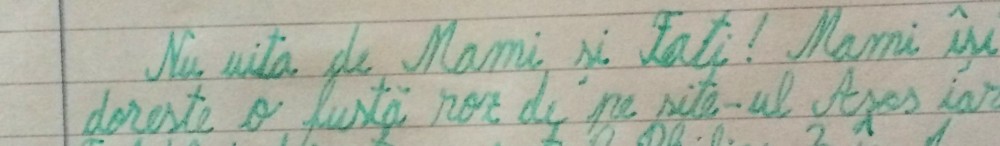 Nu uita de Mami și Tati! Mami își
dorește o fustă roz de pe site-ul Asos iar